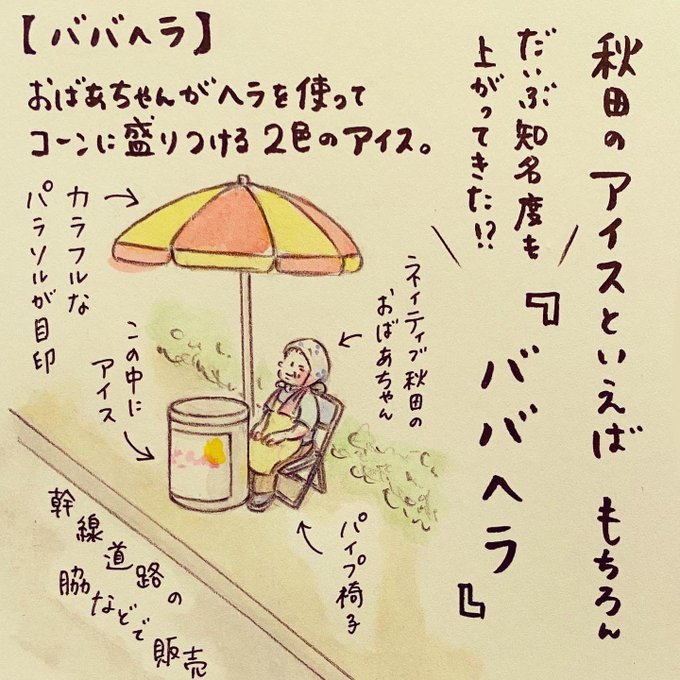 【ババヘラ】
おばあちゃんがヘラを使って
コーンに盛りつける2色のアイス。
秋田のアイスといえば もちろん
だいぶ知名度も
上がってきた!?
『ババヘラ』
カラフルな
パラソルが目印
ネイティブ秋田の
おばあちゃん
この中に
アイス
パイプ椅子
幹線道路の
脇などで販売